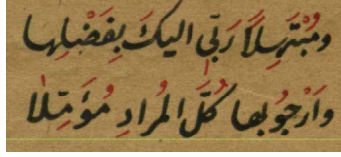 ومُبْتَهِلًا رَبِّي اليكَ بِفَضْلِها
وَاَرْجُو بها كُلَّ المُرادِ مُؤَمِّلا